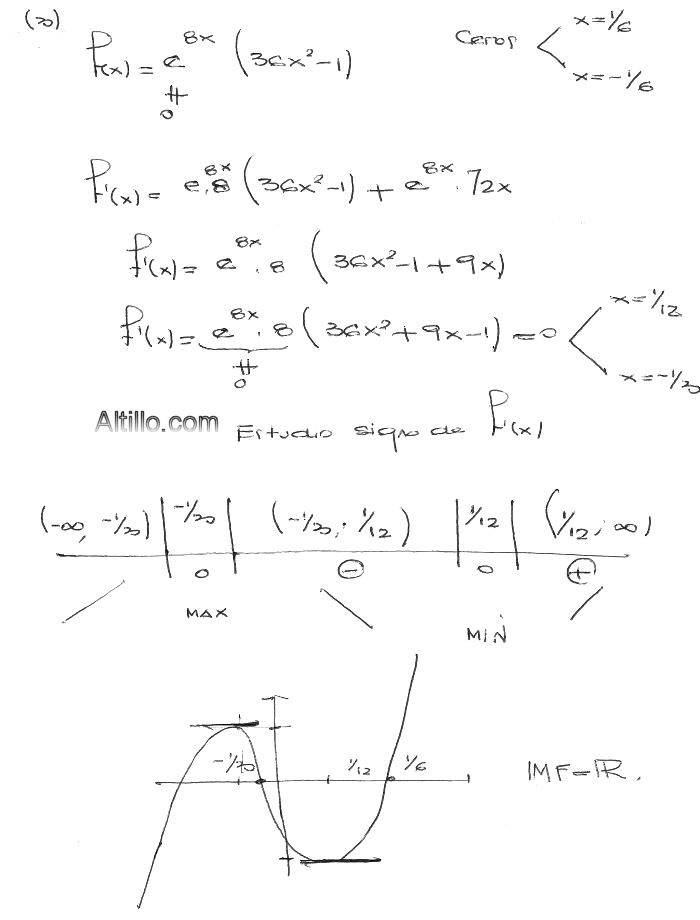 (20)
f(x) = e^8x (36x²-1) Ceros x=1/6
≠ 0 x=-1/6
f'(x) = e^8x.8 (36x²-1) + e^8x . 72x
f'(x) = e^8x . 8 (36x²-1+9x)
f'(x) = e^8x . 8 (36x²+9x-1) = 0 x=1/12
≠ 0 x=-1/3
Altillo.com Estudio signo de f'(x)
(-∞, -1/3) | -1/3 | (-1/3; 1/12) | 1/12 | (1/12; ∞)
0 - 0 +
MAX MIN
-1/3 1/12 1/6 IMF=ℝ.